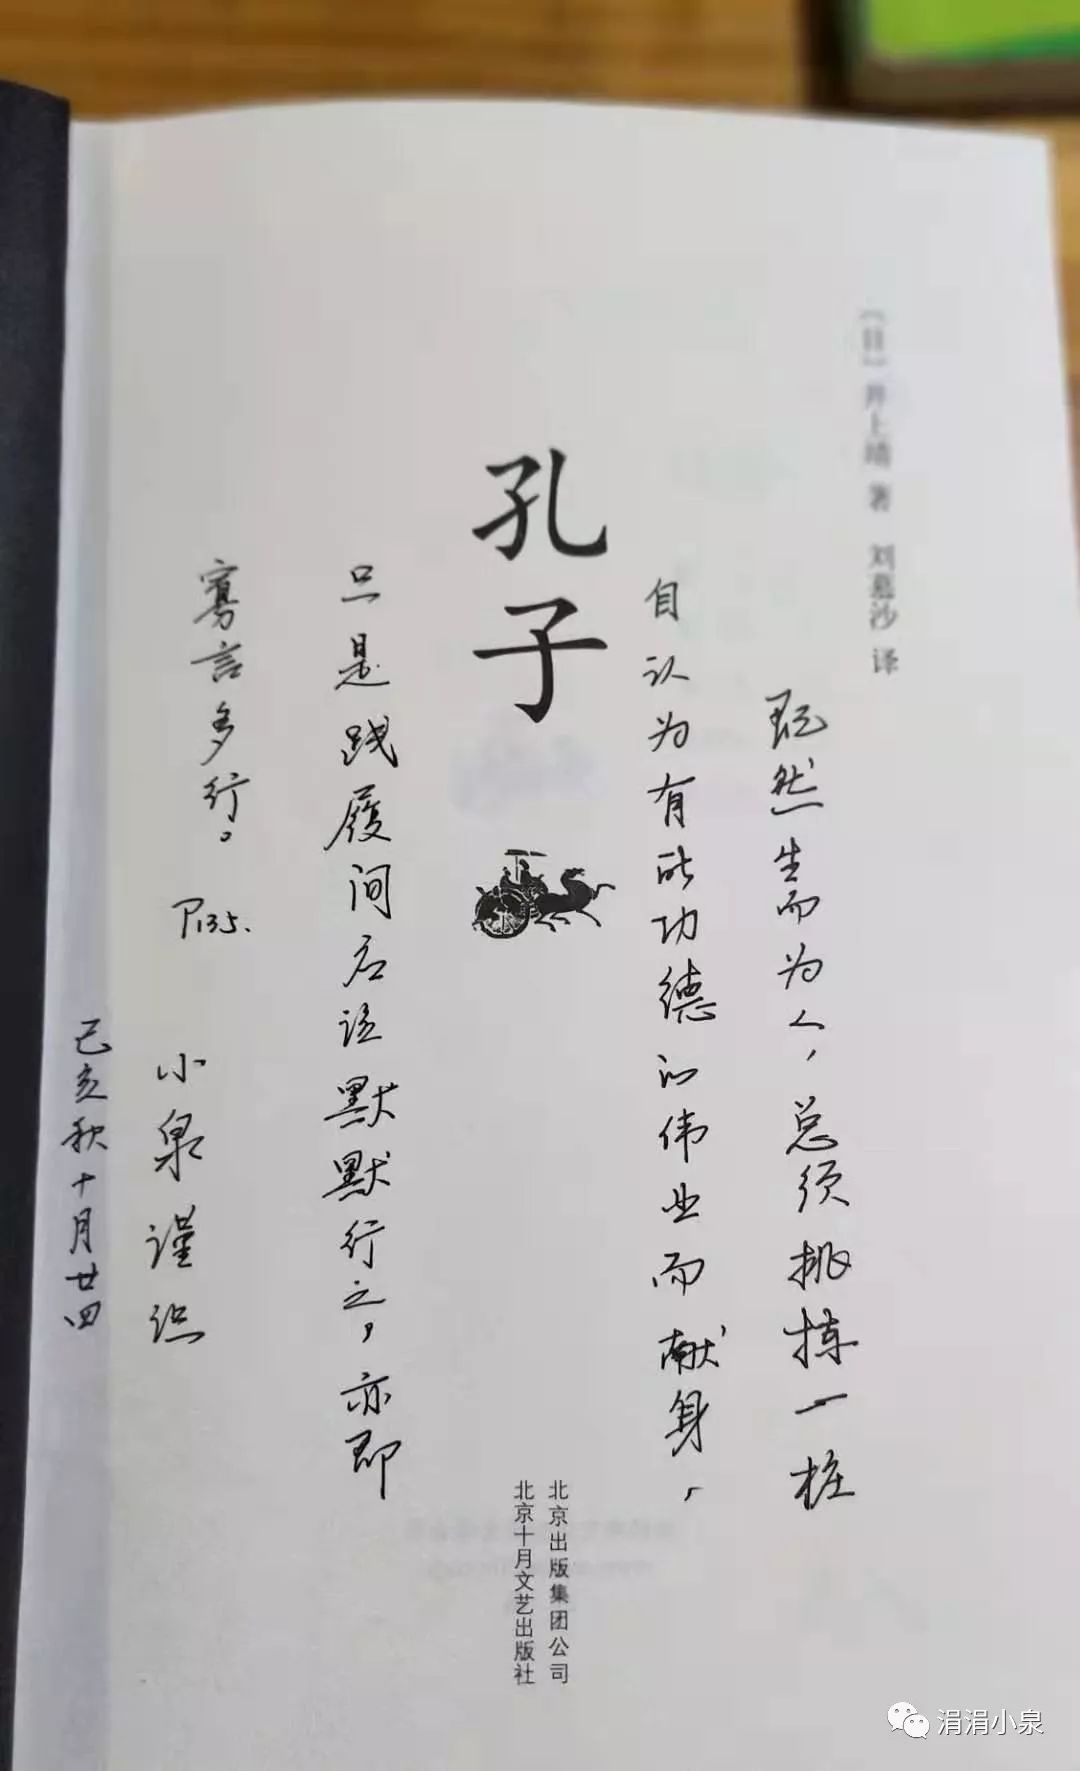 〔日〕井上靖 著 刘慕沙 译
既然生而为人，总须挑拣一桩
自认为有所功德的伟业而献身，
孔子
只是践履间应该默默行之，亦即
寡言多行。
P135.
小泉谨识
己亥秋十月廿四
北京出版集团公司
北京十月文艺出版社
涓涓小泉